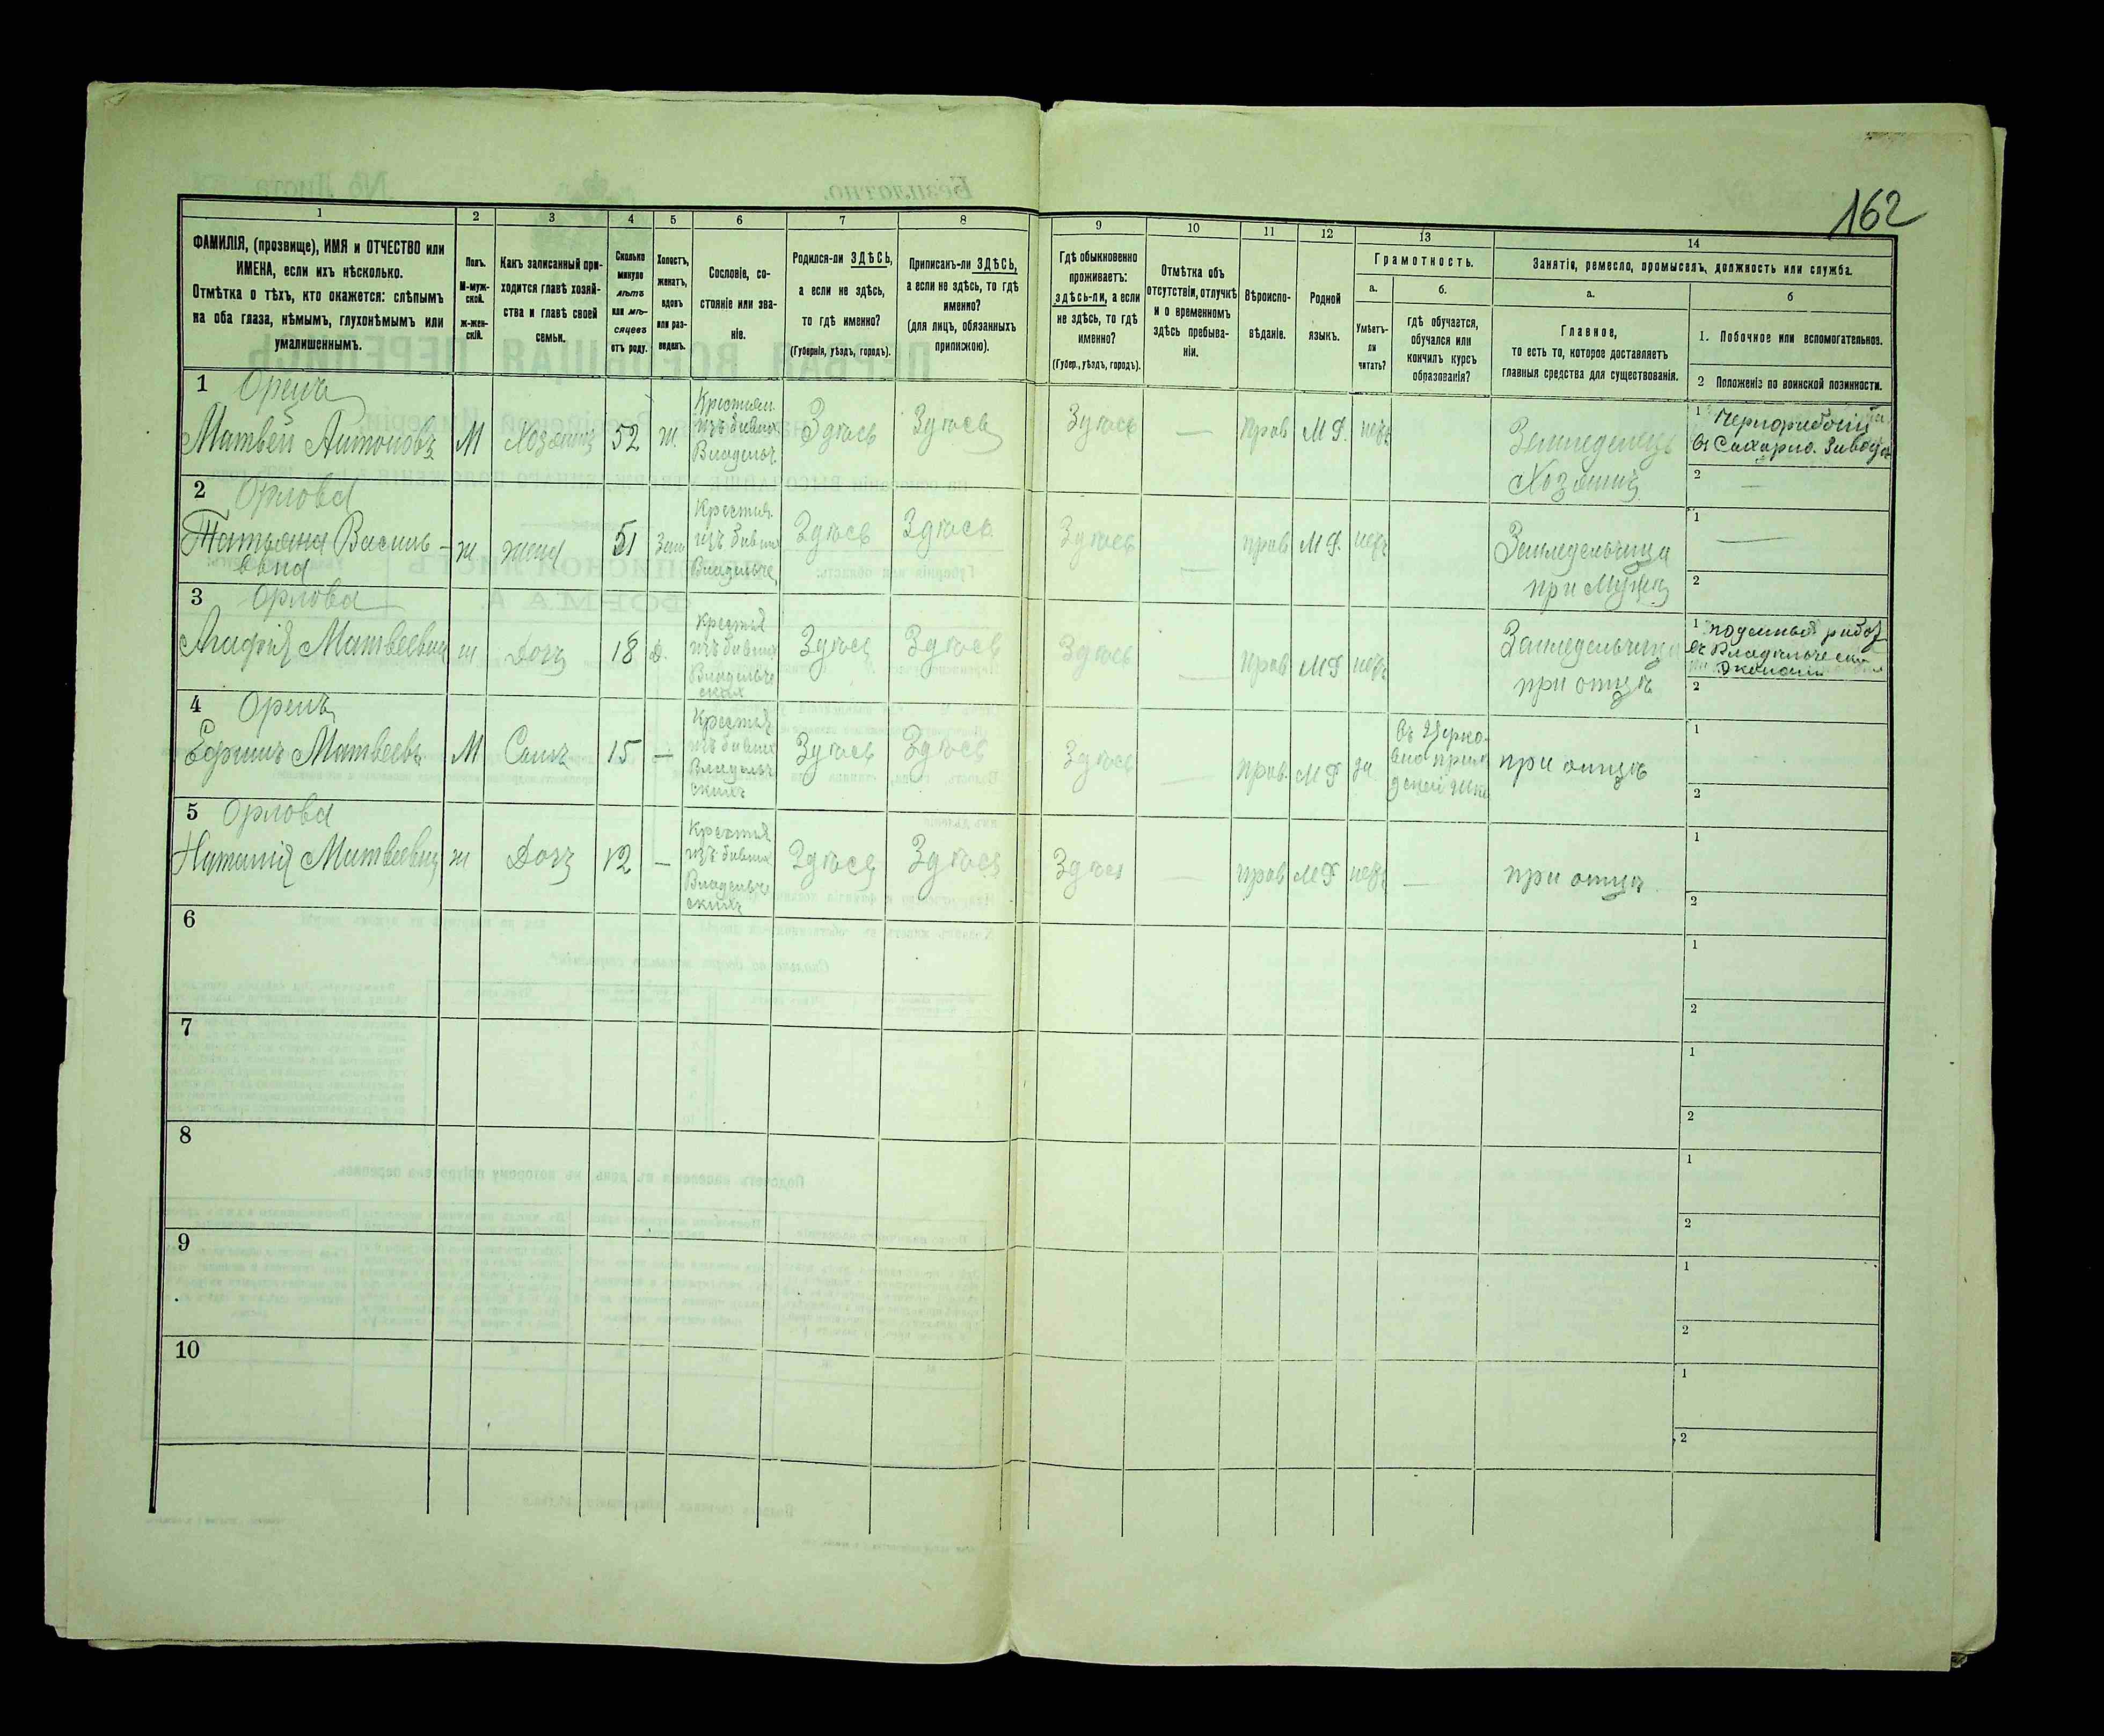 162
1 2 3 4 5 6 7 8 9 10 11 12 13 14
ФАМИЛІЯ, (прозвище), ИМЯ и ОТЧЕСТВО или
ИМЕНА, если ихъ нѣсколько.
Отмѣтка о тѣхъ, кто окажется: слѣпымъ
на оба глаза, нѣмымъ, глухонѣмымъ или
умалишеннымъ.
Полъ.
М-муж-
ской.
ж-жен-
скій.
Какъ записанный при-
ходится главѣ хозяй-
ства и главѣ своей
семьи.
Сколько
минуло
лѣтъ
или мѣ-
сяцевъ
отъ роду.
Холостъ,
женатъ,
вдовъ
или раз-
веденъ.
Сословіе, со-
стояніе или зва-
ніе.
Родился-ли ЗДѢСЬ,
а если не здѣсь,
то гдѣ именно?
(Губернія, уѣздъ, городъ).
Приписанъ-ли ЗДѢСЬ,
а если не здѣсь, то гдѣ
именно?
(для лицъ, обязанныхъ
припискою).
Гдѣ обыкновенно
проживаетъ:
здѣсь-ли, а если
не здѣсь, то гдѣ
именно?
(Губер., уѣздъ, городъ).
Отмѣтка объ
отсутствіи, отлучкѣ
и о временномъ
здѣсь пребыва-
ніи.
Вѣроиспо-
вѣданіе.
Родной
языкъ.
Грамотность.
а.
Умѣетъ-
ли
читать?
б.
гдѣ обучается,
обучался или
кончилъ курсъ
образованія?
Занятіе, ремесло, промыселъ, должность или служба.
а.
Главное,
то есть то, которое доставляетъ
главныя средства для существованія.
б
1. Побочное или вспомогательное.
2 Положеніе по воинской повинности.
1 Орелъ
Матвей Антоновъ
М
Хозяинъ
52
ж.
Крестьян.
изъ бывших
Владельч.
Здѣсь
Здѣсь
Здѣсь
—
прав
М Р.
нетъ
Земледелецъ
Хозяинъ
1 Чернорабочій
въ Сахарно. Заводѣ
2 —
2 Орлова
Татьяна Василь-
евна
ж
жена
51
Зам
Крестья.
изъ бывших
Владельче
Здѣсь
Здѣсь
Здѣсь
—
прав
М Р.
нетъ
Земледельчица
при Мужѣ
1 —
2
3 Орлова
Агафія Матвеевна
ж
Дочь
18
д.
Крестья
изъ бывших
Владельче
ских
Здѣсь
Здѣсь
Здѣсь
—
прав
М Р
нетъ
Земледельчица
при отцѣ
1
въ Владельческо
Экономіи
2
4 Орелъ
Ефимъ Матвеевъ
М
Сынъ
15
—
Крестья
изъ бывших
Владельч
скихъ
Здѣсь
Здѣсь
Здѣсь
—
прав.
М Р
да
въ Церко-
вно прихо
дской Шко
при отцѣ
1
2
5 Орлова
Наталія Матвеевна
ж
Дочь
12
—
Крестья
изъ бывших
Владельче
скихъ
Здѣсь
Здѣсь
Здѣсь
—
прав
М Р
нетъ
—
при отцѣ
1
2
6
1
2
7
1
2
8
1
2
9
1
2
10
1
2